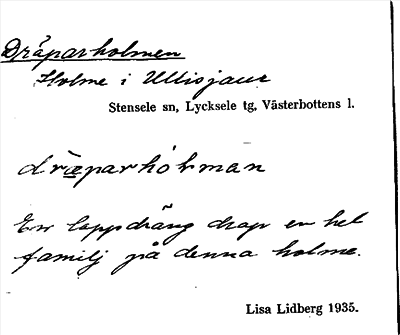 Dräparholmen
Holme i Ullisjaur
Stensele sn, Lycksele tg, Västerbottens l.
dræparhólman
En lappdräng drap en hel
familj på denna holme.
Lisa Lidberg 1935.